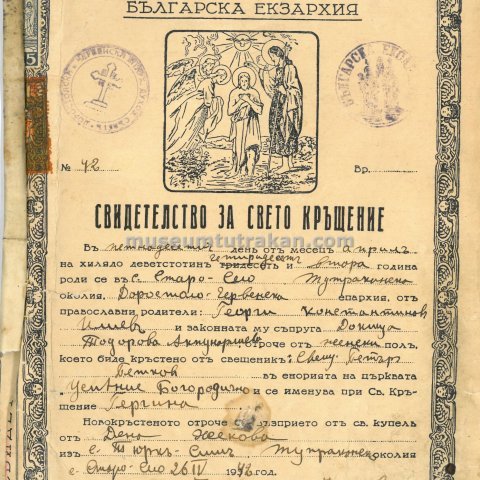 БЪЛГАРСКА ЕКЗАРХИЯ
5
№ 42
Вр.
СВИДЕТЕЛСТВО ЗА СВЕТО КРЪЩЕНИЕ
museumtutrakan.com
Въ петнадесетий день отъ месецъ априлъ
на хилядо деветстотинъ тридесетъ и четиридесетъ втора година
роди се въ с. Старо-Село Тутраканска
околия, Доростоло-Червенска епархия, отъ
православни родители: Георги Константинов
Илиев и законната му съпруга Докица
Тодорова отроче отъ женски полъ,
което биде кръстено отъ свещеникъ: Свещ. Петър
въ енорията на църквата
Успение Богородично и се именува при Св. Кръ-
щение Гергина
Новокръстеното отроче възприето от св. купель
отъ Дена Жекова
изъ с. Тюркъ-Смил, Тутраканска околия
с. Старо-Село 26 IV 1942 год.